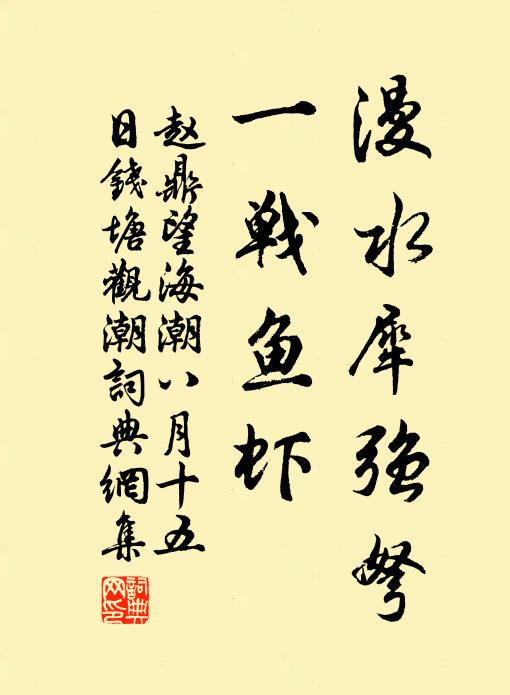 漫水犀强弩
一战鱼虾
赵鼎望海潮八月十五
日钱塘觀潮詞典網集
詞典網印